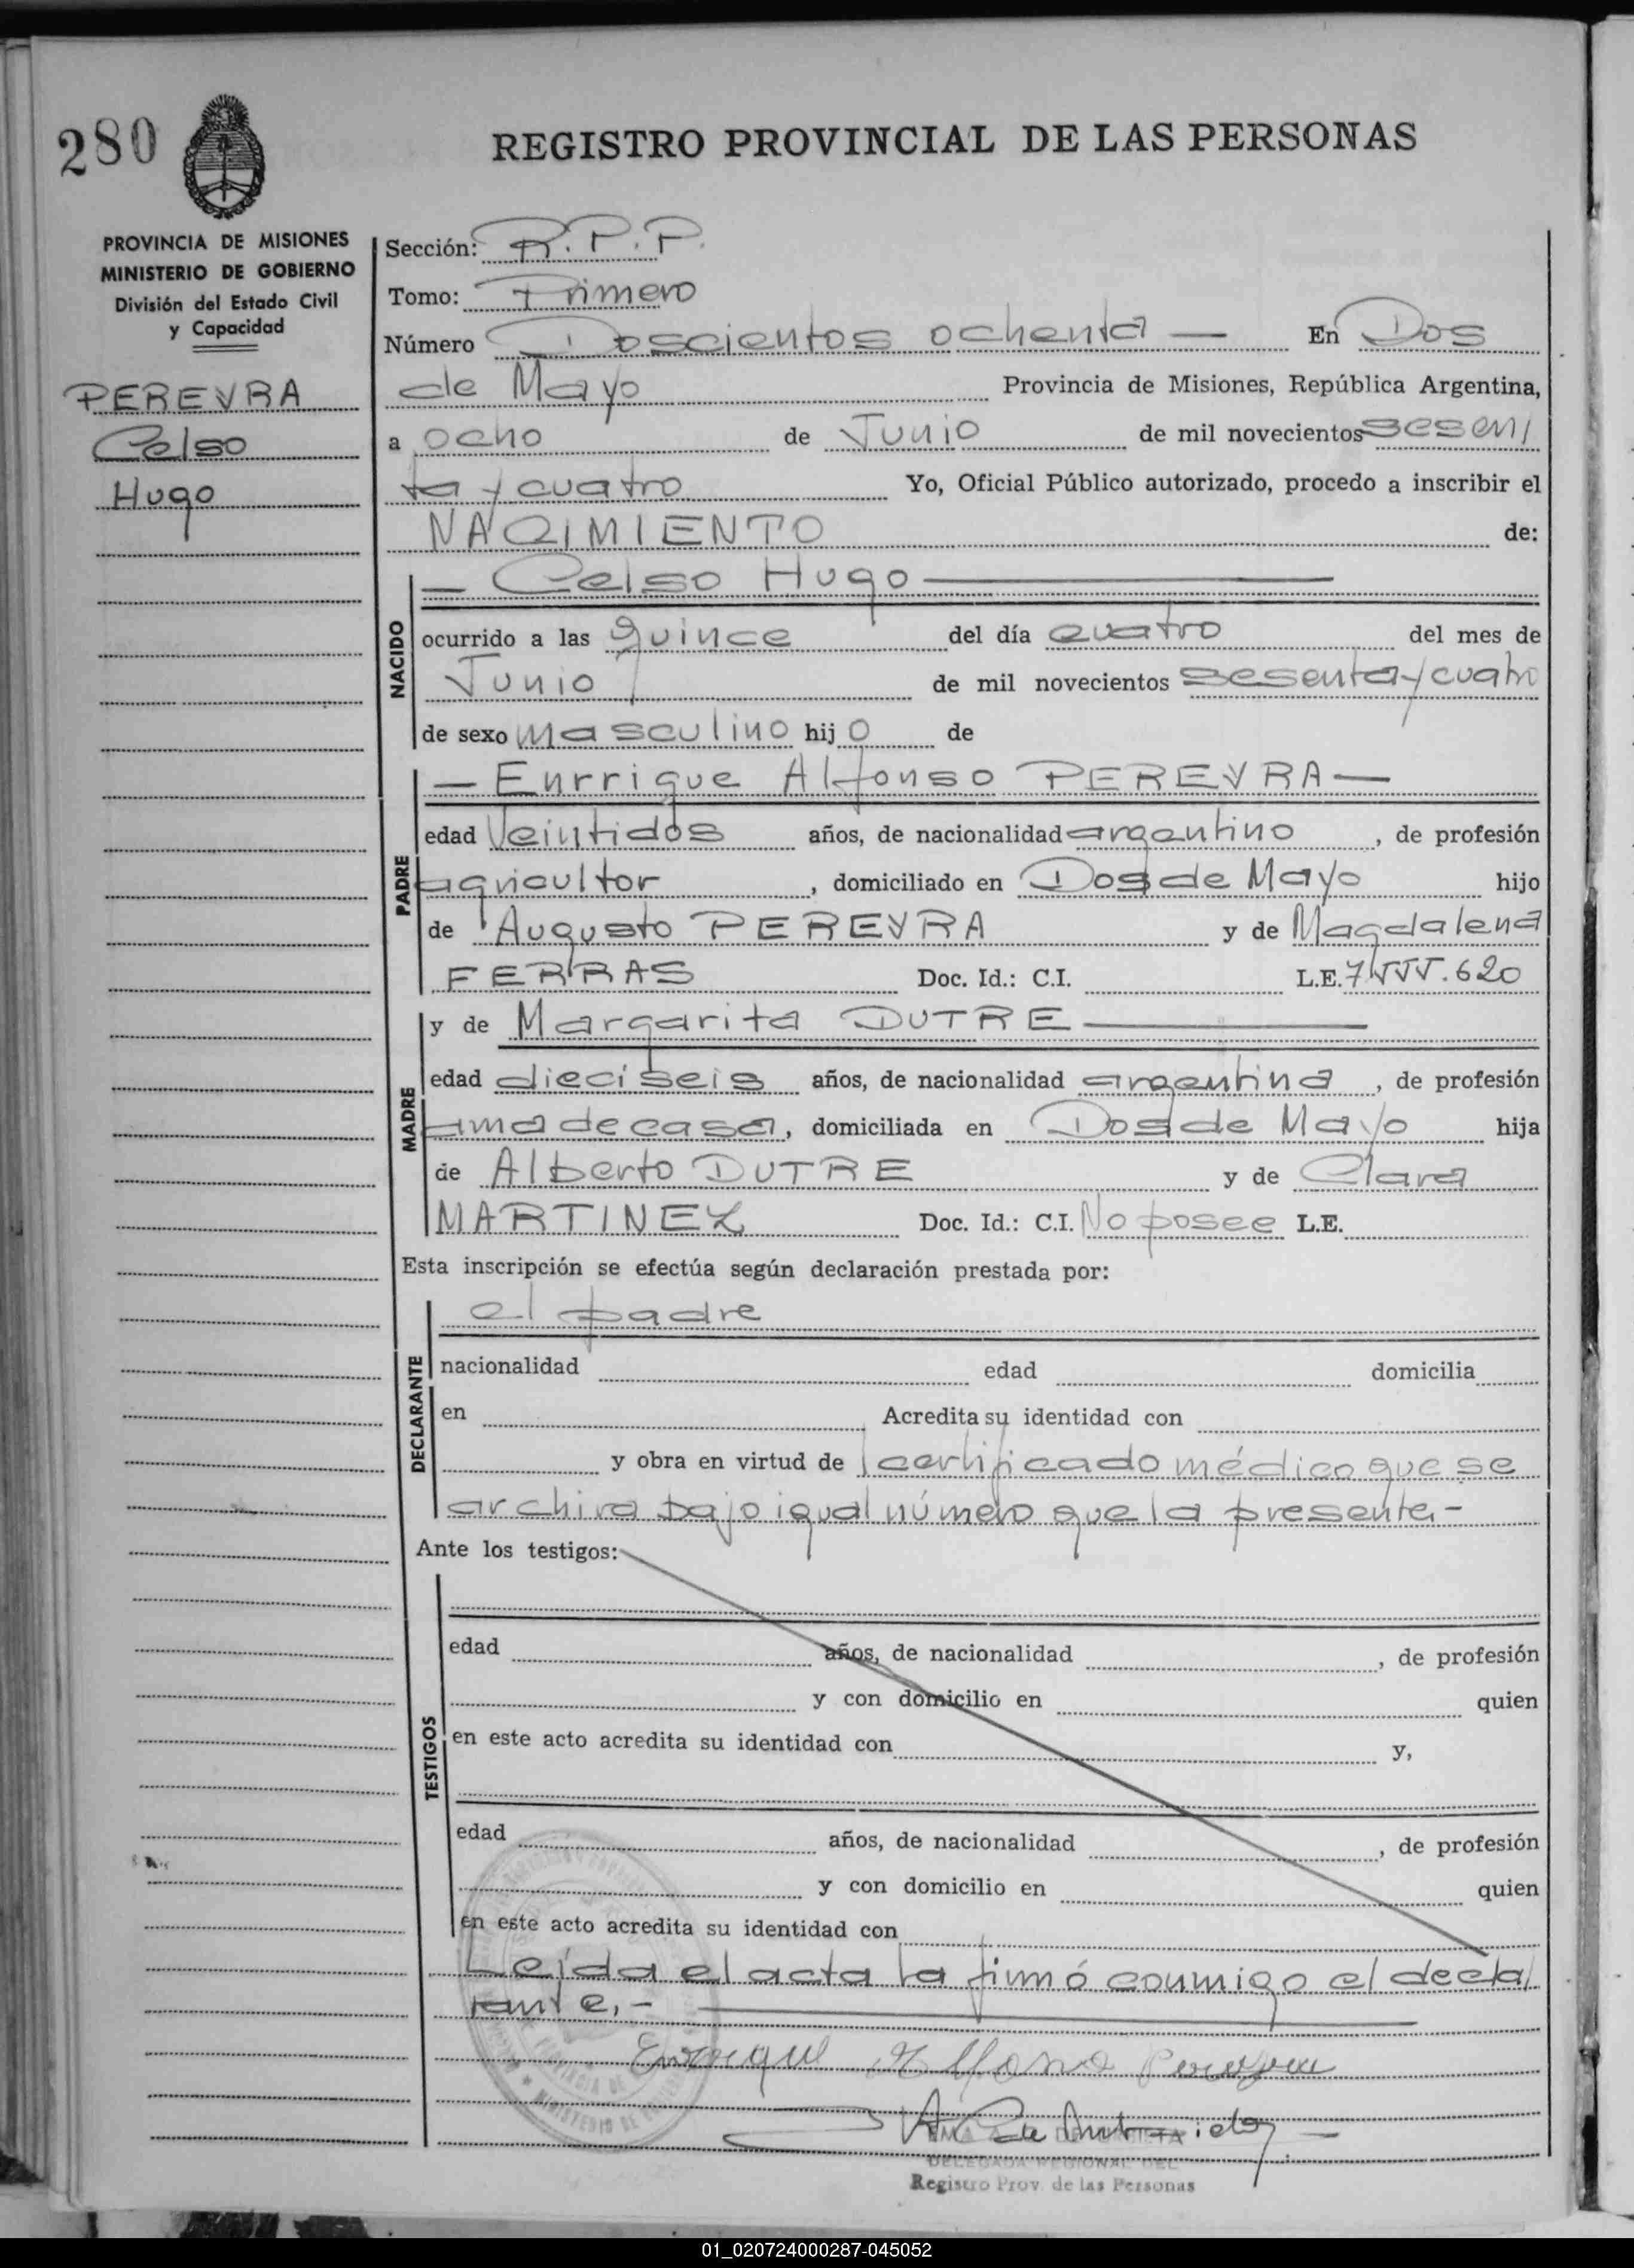 280
REGISTRO PROVINCIAL DE LAS PERSONAS
PROVINCIA DE MISIONES
MINISTERIO DE GOBIERNO
División del Estado Civil
y Capacidad
PEREYRA
Celso
Hugo
Sección: R.P.P.
Tomo: Primero
Número Doscientos ochenta — En Dos
de Mayo Provincia de Misiones, República Argentina,
a ocho de Junio de mil novecientos sesen/
ta y cuatro Yo, Oficial Público autorizado, procedo a inscribir el
NACIMIENTO de:
NACIDO
— Celso Hugo —
ocurrido a las quince del día cuatro del mes de
Junio de mil novecientos sesenta y cuatro
de sexo masculino hijo de
PADRE
— Enrrique Alfonso PEREYRA —
edad Veintidos años, de nacionalidad argentino, de profesión
agricultor, domiciliado en Dos de Mayo hijo
de Augusto PEREYRA y de Magdalena
FERRAS Doc. Id.: C.I. L.E. 7555.620
MADRE
y de Margarita DUTRE —
edad dieciseis años, de nacionalidad argentina, de profesión
ama de casa, domiciliada en Dos de Mayo hija
de Alberto DUTRE y de Clara
MARTINEZ Doc. Id.: C.I. No posee L.E.
Esta inscripción se efectúa según declaración prestada por:
DECLARANTE
el padre
nacionalidad edad domicilia
en Acredita su identidad con
y obra en virtud de certificado médico que se
archiva bajo igual número que la presente.-
Ante los testigos:
TESTIGOS
edad años, de nacionalidad , de profesión
y con domicilio en quien
en este acto acredita su identidad con y,
edad años, de nacionalidad , de profesión
y con domicilio en quien
en este acto acredita su identidad con
Leída el acta la firmó conmigo el decla/
rante.-
Enrrique Alfonso Pereyra
DELEGADA REGIONAL DEL
Registro Prov. de las Personas
01_020724000287-045052